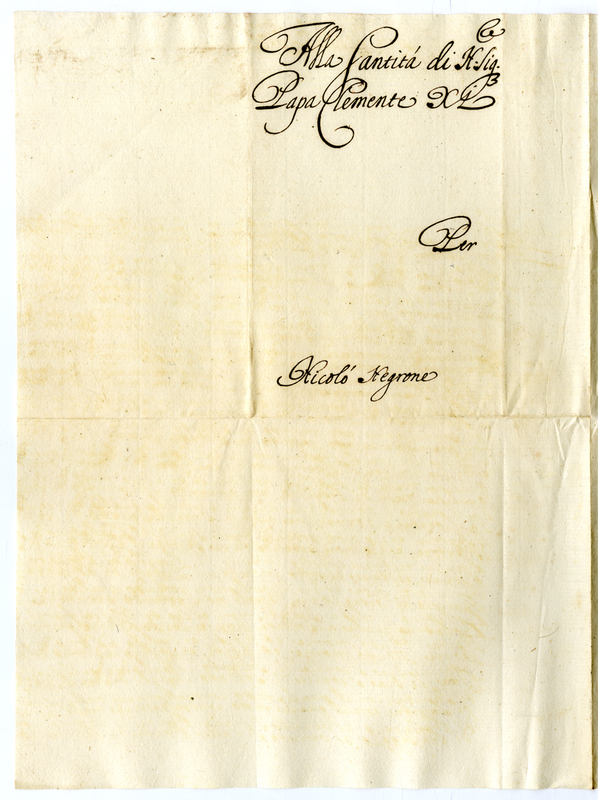 Alla Santitá di N. Sig.re
Papa Clemente XI
Per
Nicoló Negrone